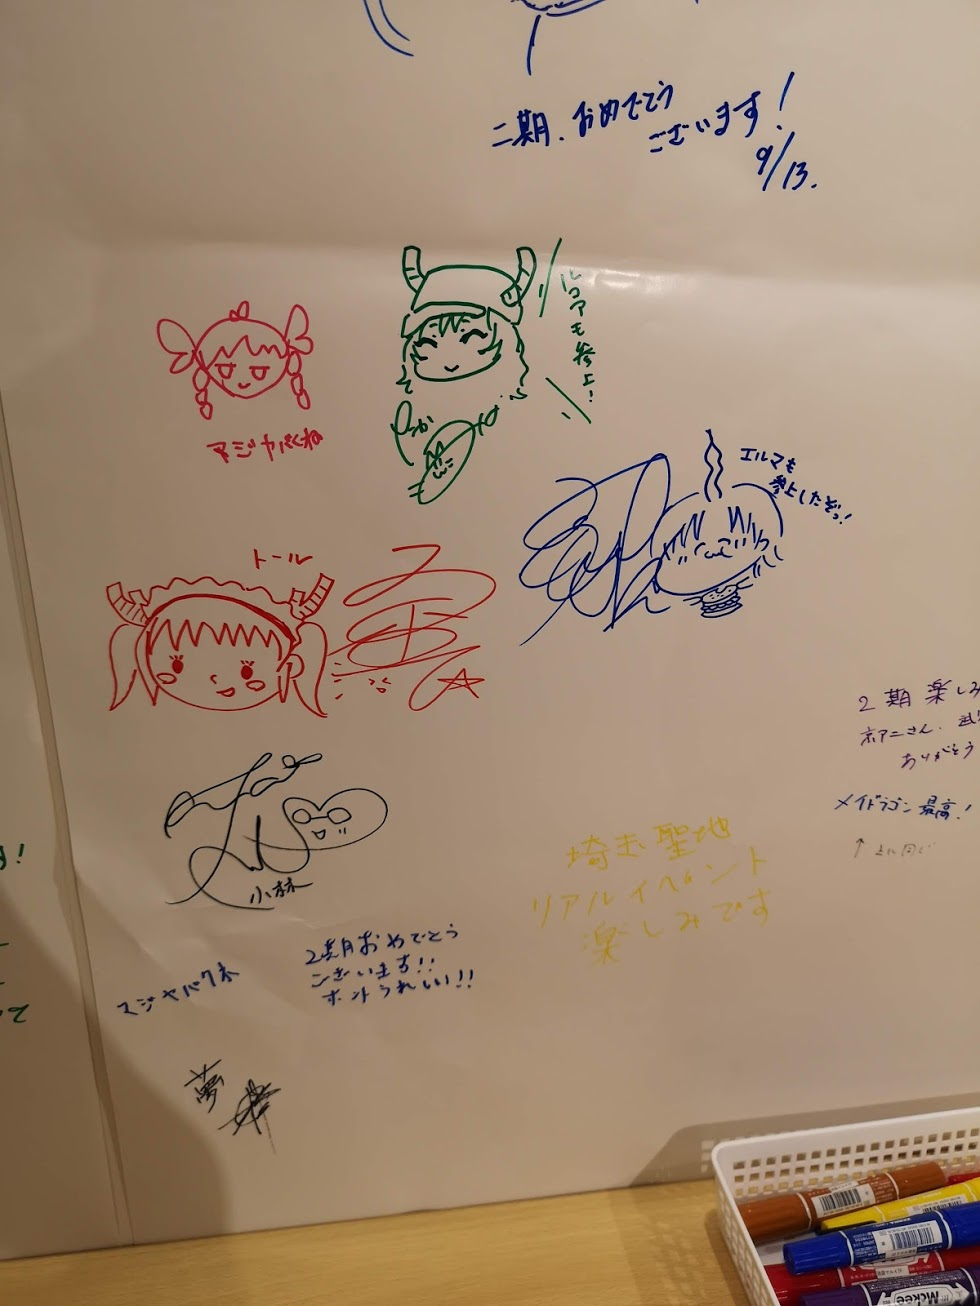 二期.おめでとう
ございます!
9/13.
ルコアも参上!
マジヤバくね
エルマも
参上したぞっ!
トール
2期楽しみ
京アニさん.
ありがとう
メイドラゴン最高!
小林
埼玉聖地
リアルイベント
楽しみです
2期おめでとう
ございます!!
ホントうれしい!!
マジヤバクネ
夢
Mckee